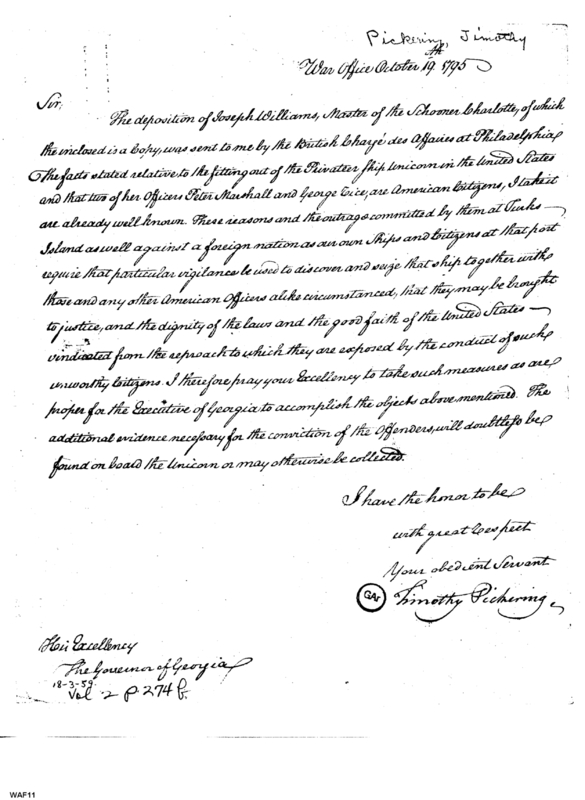 Pickering, Timothy
War Office October 19, 1795
Sir,
The deposition of Joseph Williams, Master of the Schooner Charlotte, of which
the inclosed is a Copy, was sent to me by the British Chargé des Affaires at Philadelphia
The facts stated relative to the fitting out of the Privateer Ship Unicorn in the United States
and that two of her Officers Peter Marshall and George Tice, are American Citizens, I take it
are already well known. These reasons and the outrage committed by them at Turks
Island as well against a foreign nation as our own Ships and Citizens at that port
require that particular vigilance be used to discover and seize that ship together with
those and any other American Officers alike circumstanced, that they may be brought
to justice, and the dignity of the laws and the good faith of the United States
vindicated from the reproach to which they are exposed by the conduct of such
unworthy Citizens. I therefore pray your Excellency to take such measures as are
proper for the Executive of Georgia to accomplish the objects above mentioned. The
additional evidence necessary for the conviction of the Offenders, will doubtless be
found on board the Unicorn or may otherwise be collected.
I have the honor to be
with great respect
Your obedient Servant
GAr Timothy Pickering,
His Excellency
The Governor of Georgia
18-3-59
Vol 2 p. 274 f.
WAF11